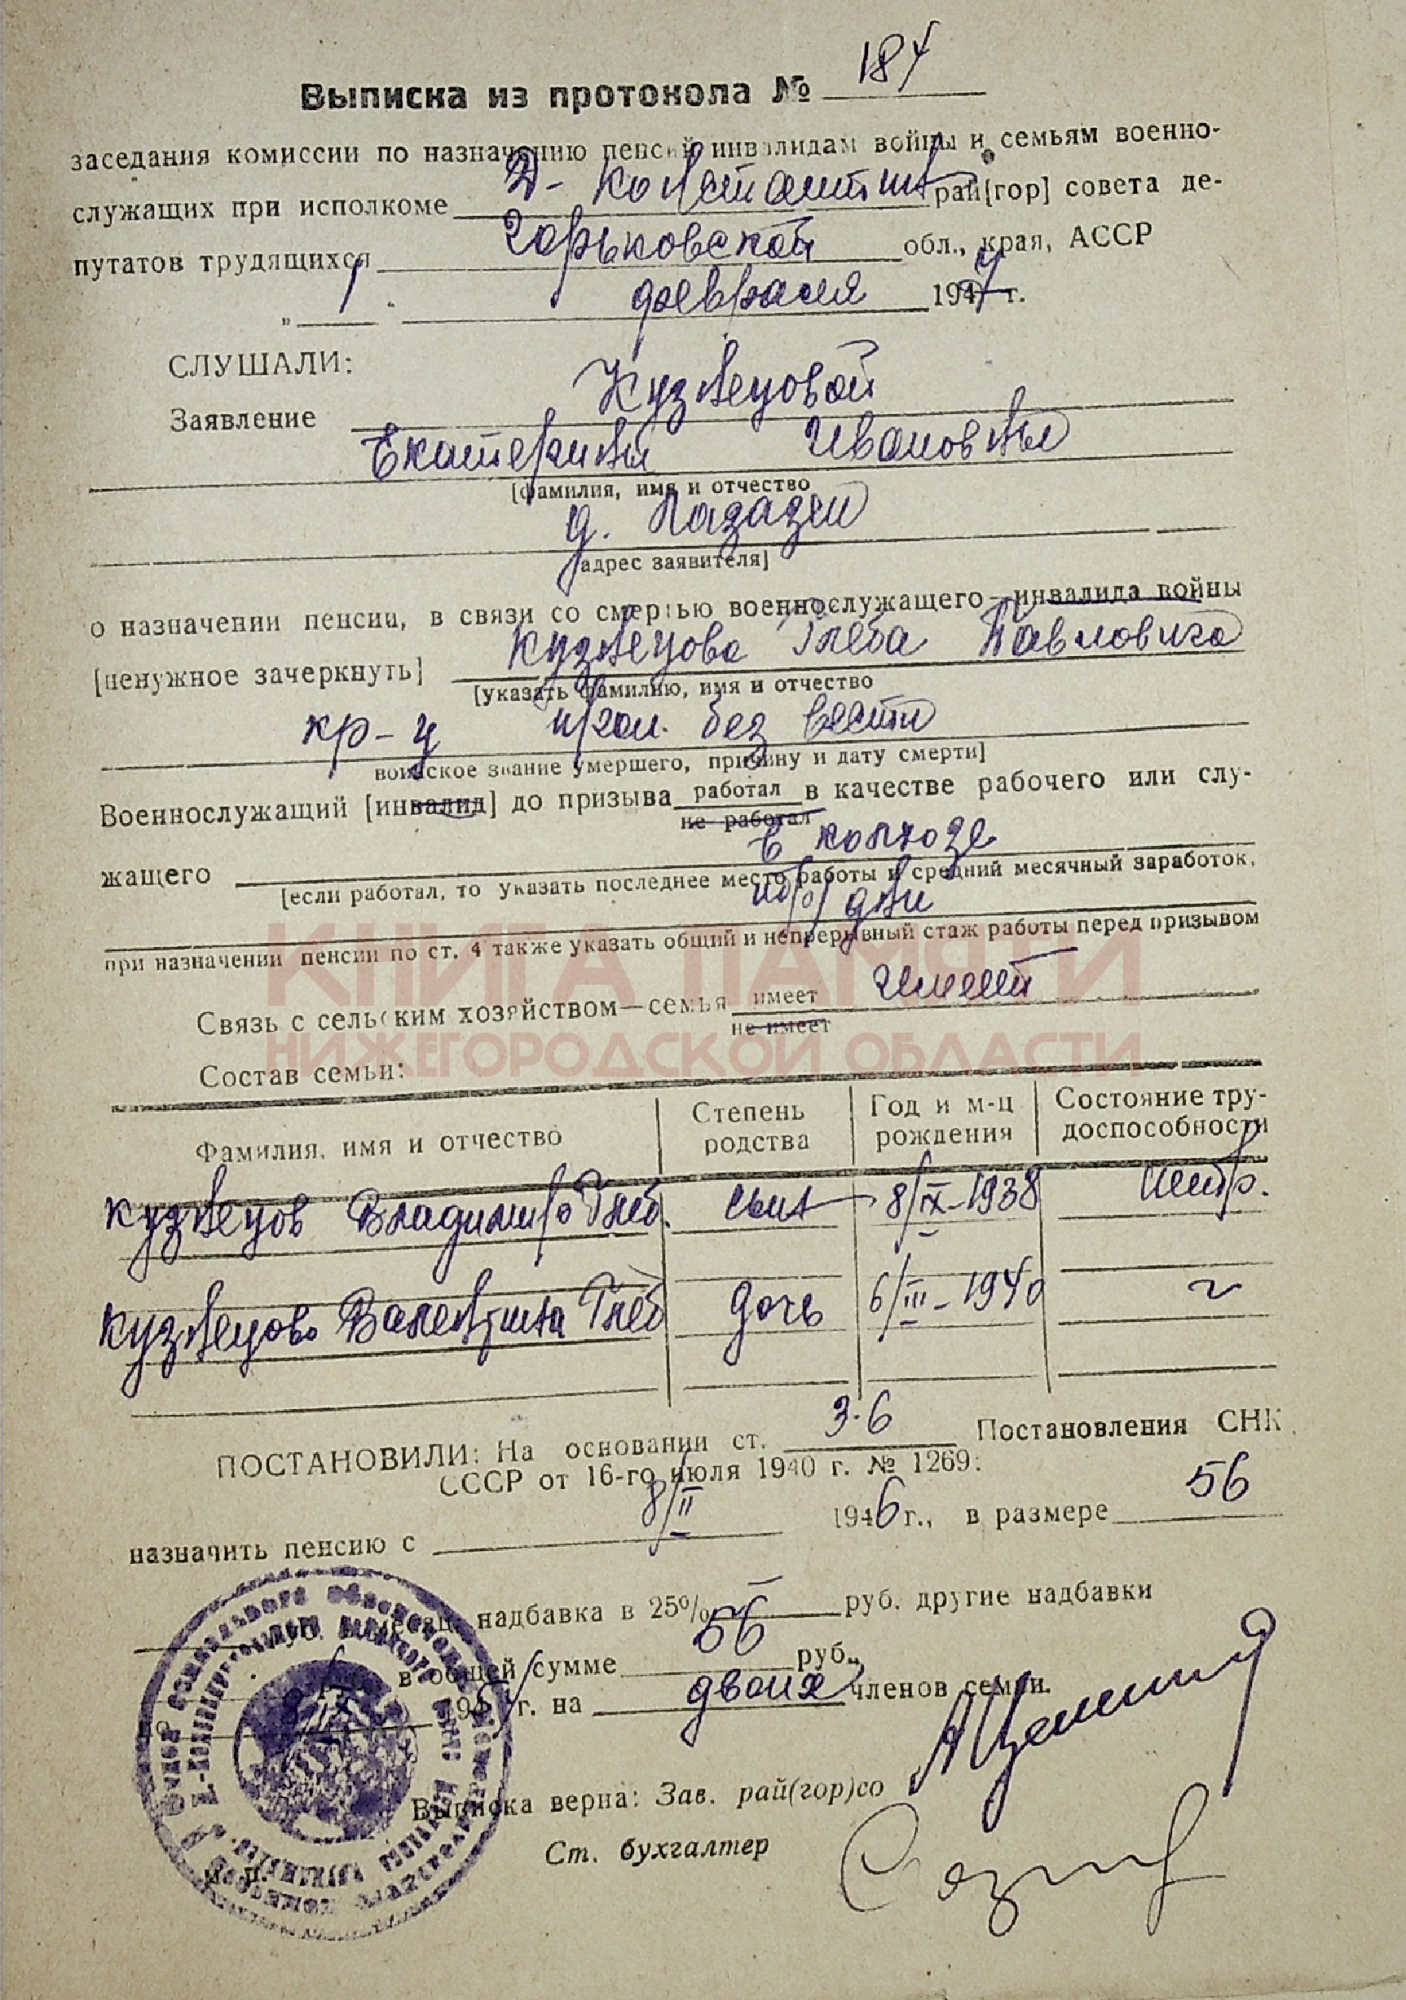 Выписка из протокола № 184
заседания комиссии по назначению пенсий инвалидам войны и семьям военно-
служащих при исполкоме Д-Константин рай[гор] совета де-
путатов трудящихся Горьковской обл., края, АССР
„ 1 февраля 1947 г.
СЛУШАЛИ:
Заявление Кузнецовой
Екатерины Ивановны
[фамилия, имя и отчество
д.
адрес заявителя]
о назначении пенсии, в связи со смертью военнослужащего—инвалида войны
[ненужное зачеркнуть] Кузнецова Глеба Павловича
[указать фамилию, имя и отчество
кр-ц без вести
воинское звание умершего, причину и дату смерти]
Военнослужащий [инвалид] до призыва работал в качестве рабочего или слу-
не работал
жащего в колхозе
[если работал, то указать последнее место работы и средний месячный заработок,
дни
при назначении пенсии по ст. 4 также указать общий и непрерывный стаж работы перед призывом
КНИГА ПАМЯТИ
Связь с сельским хозяйством—семья имеет имеет
не имеет
НИЖЕГОРОДСКОЙ ОБЛАСТИ
Состав семьи:
Фамилия, имя и отчество Степень родства Год и м-ц рождения Состояние тру-доспособности
Кузнецов Владимир Глеб. сын 8/IX-1938 нетр.
Кузнецова Валентина Глеб дочь 6/III-1940
ПОСТАНОВИЛИ: На основании ст. 3-6 Постановления СНК
СССР от 16-го июля 1940 г. № 1269:
назначить пенсию с 8/II 1946 г., в размере 56
руб. в месяц, надбавка в 25% — руб. другие надбавки
в общей сумме 56 руб.,
по 8/IX 194 г. на двоих членов семьи.
Выписка верна: Зав. рай(гор)со
Ст. бухгалтер
М. П.